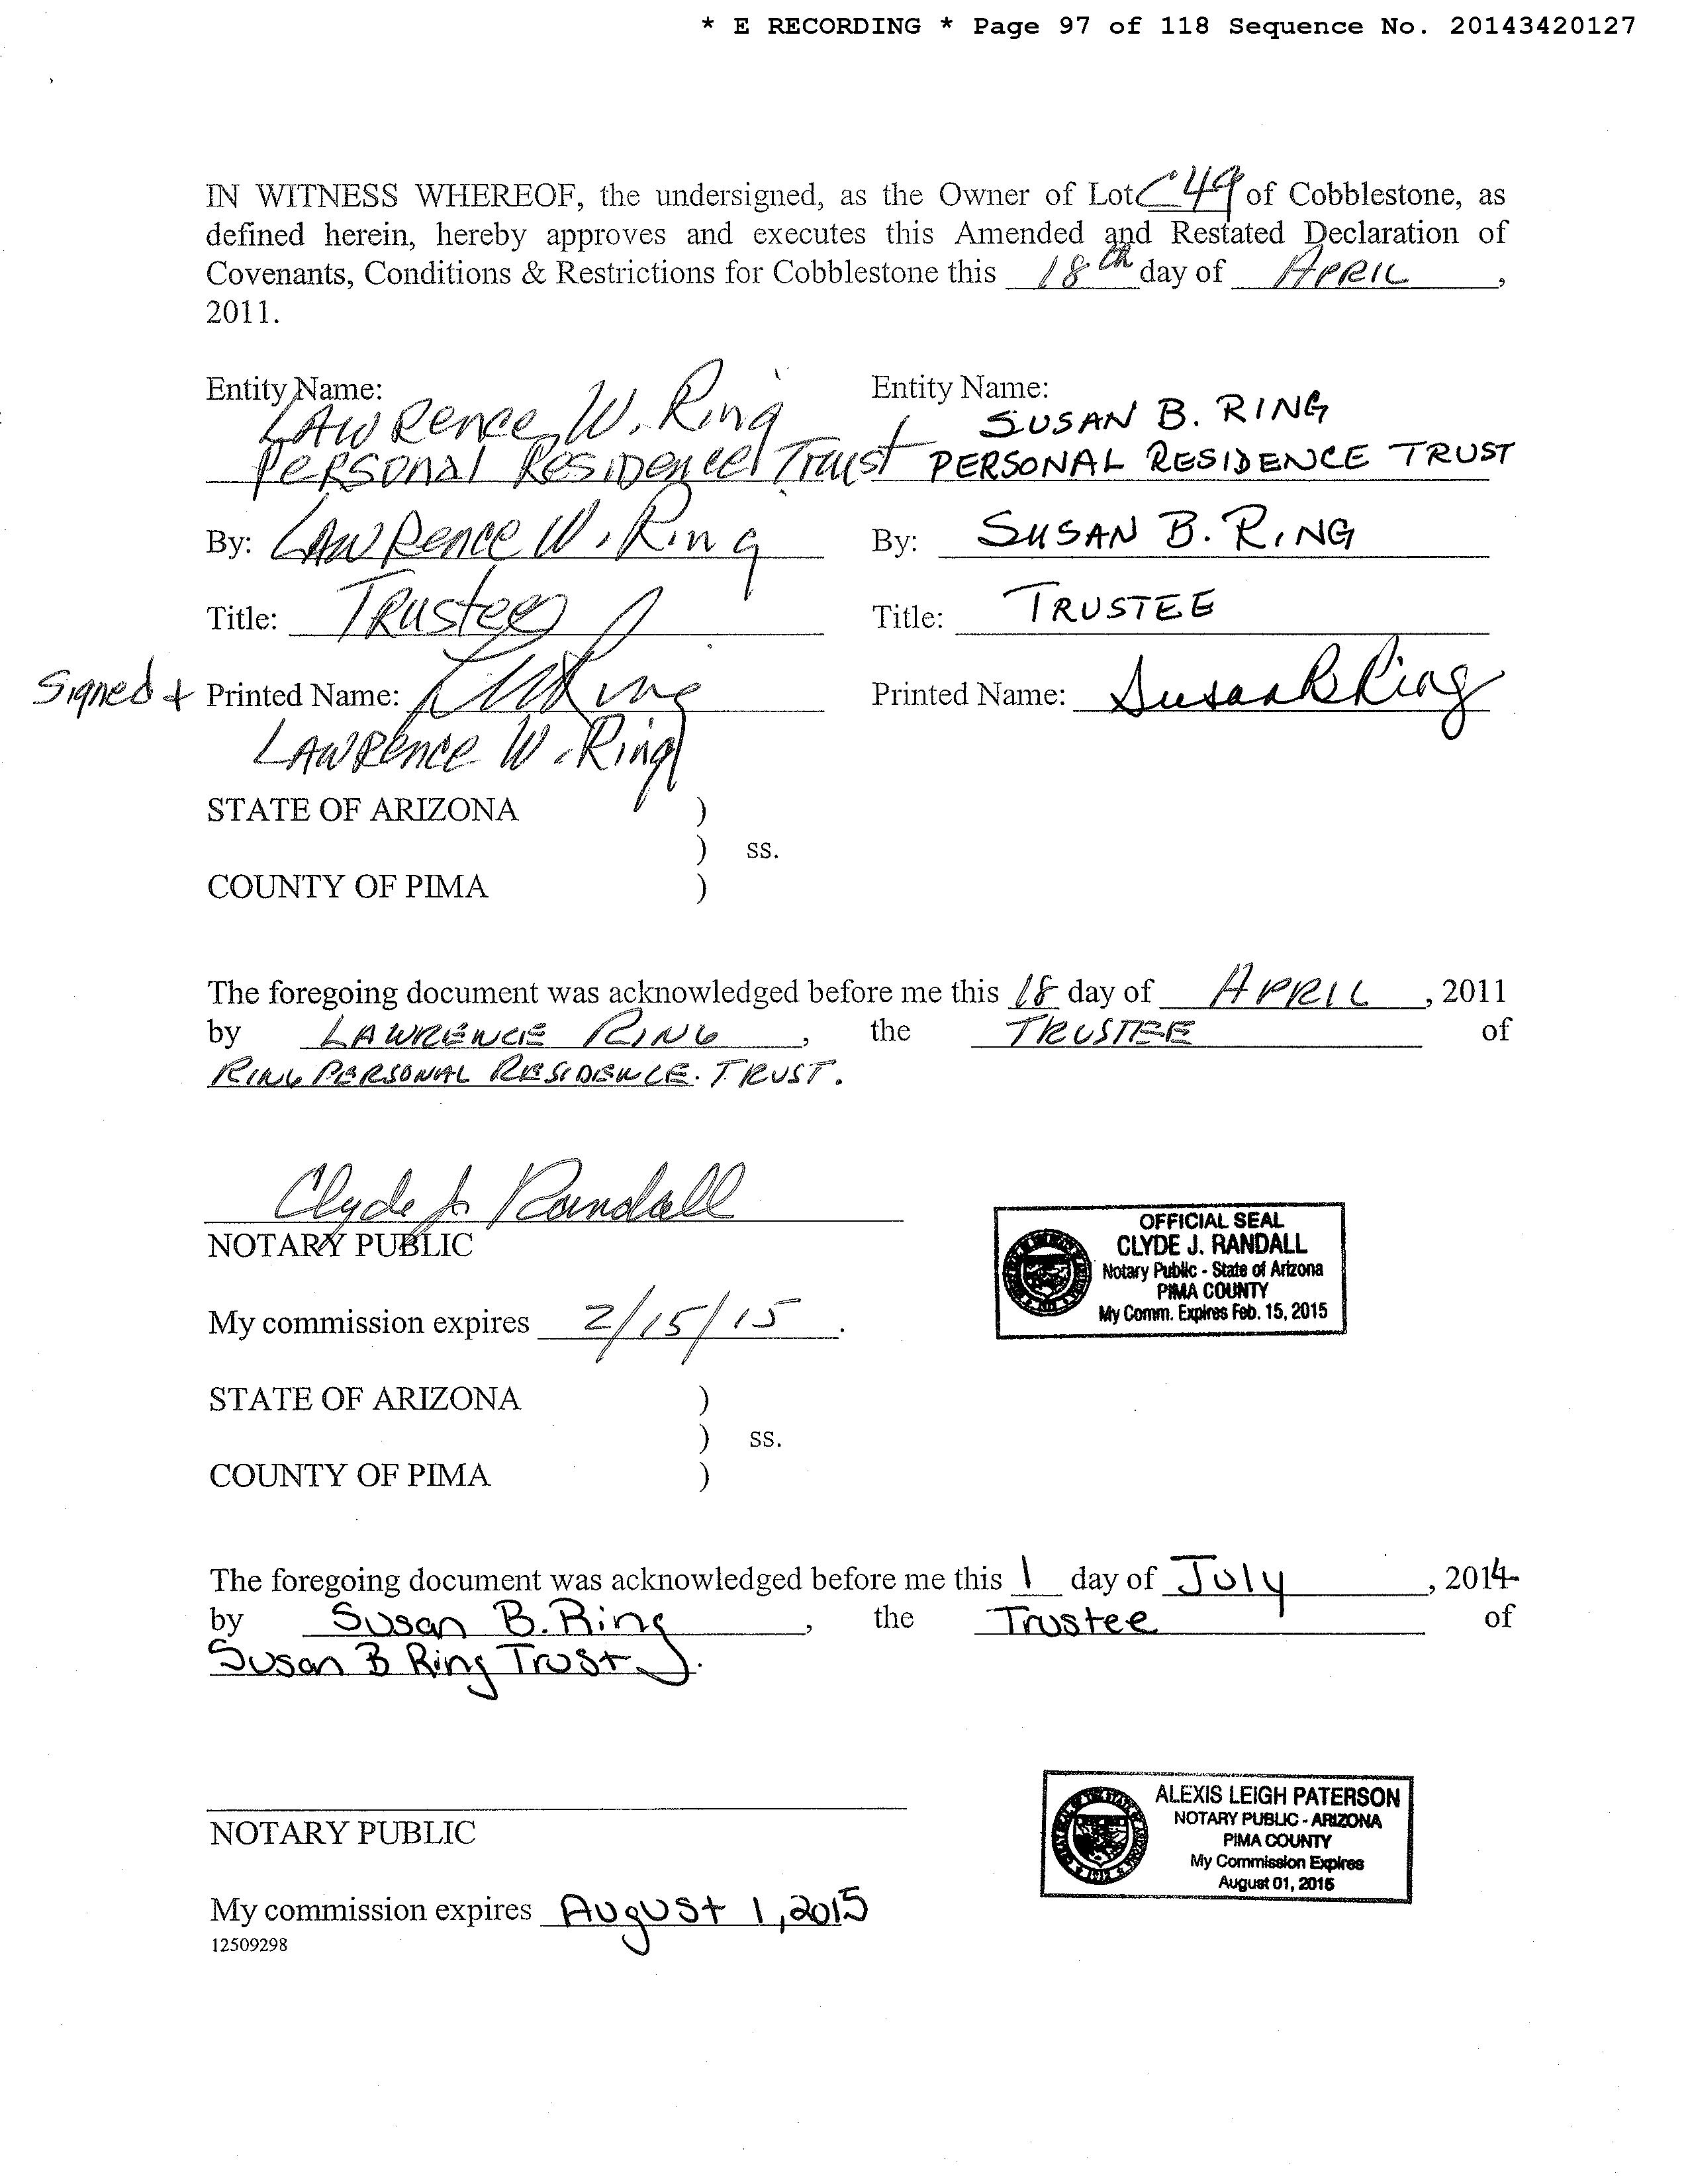 * E RECORDING * Page 97 of 118 Sequence No. 20143420127
IN WITNESS WHEREOF, the undersigned, as the Owner of Lot C 49 of Cobblestone, as
defined herein, hereby approves and executes this Amended and Restated Declaration of
Covenants, Conditions & Restrictions for Cobblestone this 18th day of APRIL,
2011.
Entity Name: Entity Name:
LAWRence W. Ring SUSAN B. RING
PERSONAl ResiDence Trust PERSONAL RESIDENCE TRUST
By: LAWRence W. Ring By: SUSAN B. RING
Title: TRustee Title: TRUSTEE
Signed + Printed Name: LWRing Printed Name: Susan B Ring
LAWRence W. Ring
STATE OF ARIZONA )
) ss.
COUNTY OF PIMA )
The foregoing document was acknowledged before me this 18 day of APRIL, 2011
by LAWRENCE RING, the TRUSTEE of
RING PERSONAL RESIDENCE. TRUST.
Clyde J. Randall
NOTARY PUBLIC
OFFICIAL SEAL
CLYDE J. RANDALL
Notary Public - State of Arizona
PIMA COUNTY
My Comm. Expires Feb. 15, 2015
My commission expires 2/15/15.
STATE OF ARIZONA )
) ss.
COUNTY OF PIMA )
The foregoing document was acknowledged before me this 1 day of July, 2014
by Susan B. Ring, the Trustee of
Susan B Ring Trust.
NOTARY PUBLIC
ALEXIS LEIGH PATERSON
NOTARY PUBLIC - ARIZONA
PIMA COUNTY
My Commission Expires
August 01, 2015
My commission expires August 1, 2015
12509298